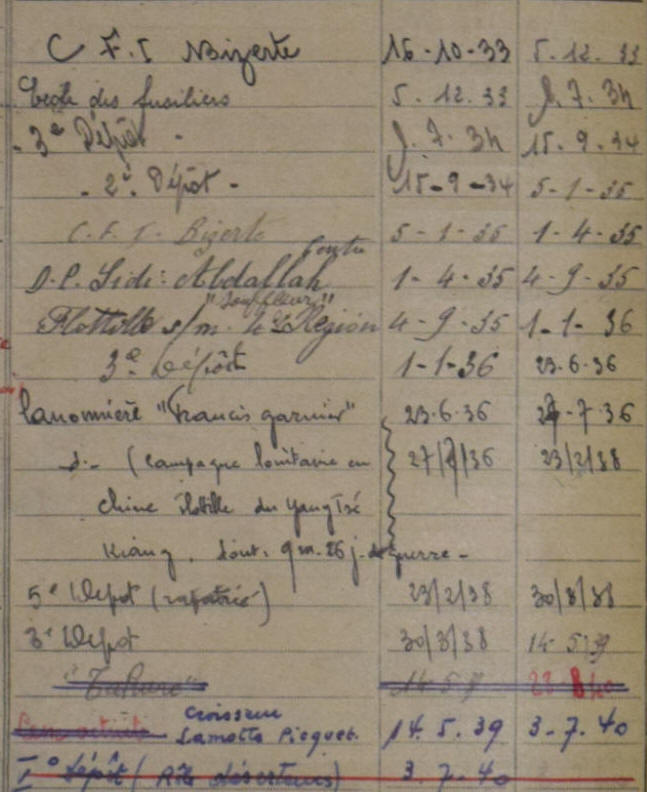 C F. T Bizerte 16-10-33 5.12.33
Ecole des fusiliers 5.12.33 8.7.34
- 3e Dépôt - 8.7.34 15.9.34
- 2e Dépôt - 15-9-34 5-1-35
C.F.T. Bizerte 5-1-35 1-4-35
D.P. Sidi: Abdallah 1-4-35 4-9-35
"Souffleur"
Flottille s/m. 4e Région 4-9-35 1-1-36
3e Dépôt 1-1-36 23.6.36
Canonnière "Francis garnier" 23.6.36 27-7-36
d.- (Campagne lointaine en 27/7/36 23/2/38
chine flotille du yang Tsé
Kiang. dont: 9 m. 26 j. de guerre -
5e Depot (rapatrié) 23/2/38 30/3/38
3e Depot 30/3/38 14 5 39
14 5 39
Croiseur
Lamotte Picquet. 14.5.39 3-7.40
1° dépôt (Rôle déserteurs) 3.7.40